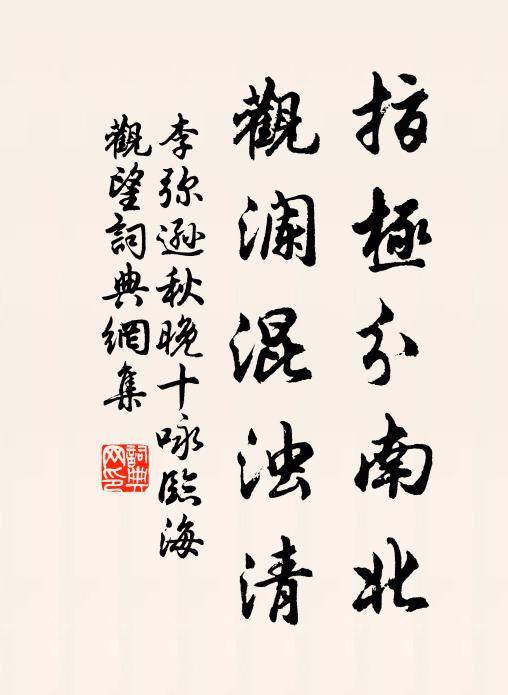 指極分南北
觀澜混浊清
李弥遜秋晚十咏臨海
觀望詞典網集
詞典网印